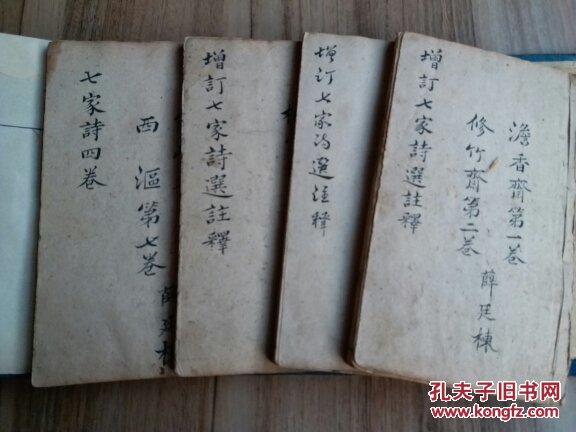 澹香齋第一卷
修竹齋第二卷
薛廷棟
增訂七家詩選註釋
增订七家诗選注釋
增訂七家詩選註釋
西漚第七卷
薛廷
七家詩四卷
孔夫子旧书网
www.kongfz.com